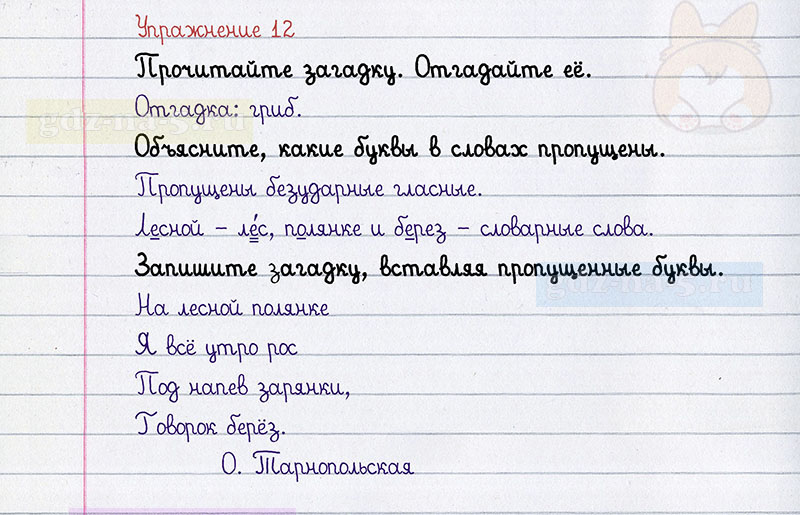 Упражнение 12
Прочитайте загадку. Отгадайте её.
Отгадка: гриб.
gdz-na-5.ru
Объясните, какие буквы в словах пропущены.
Пропущены безударные гласные.
Лесной – ле́с, полянке и берез – словарные слова.
Запишите загадку, вставляя пропущенные буквы.
gdz-na-5.ru
На лесной полянке
Я всё утро рос
Под напев зарянки,
Говорок берёз.
О. Тарнопольская